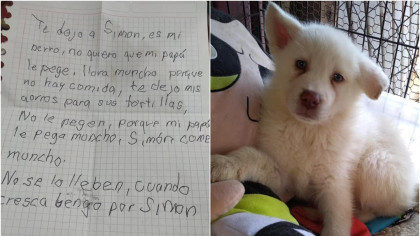 Te dejo a Simon, es mi
perro, no quiero que mi papá
le pege, llora muncho, porque
no hay comida, te dejo mis
aorros para sus tortillas.
No le pegen, porque mi papá
le pega moncho, Simón come
muncho.
No se lo lleben, cuando
cresca bengo por Simon